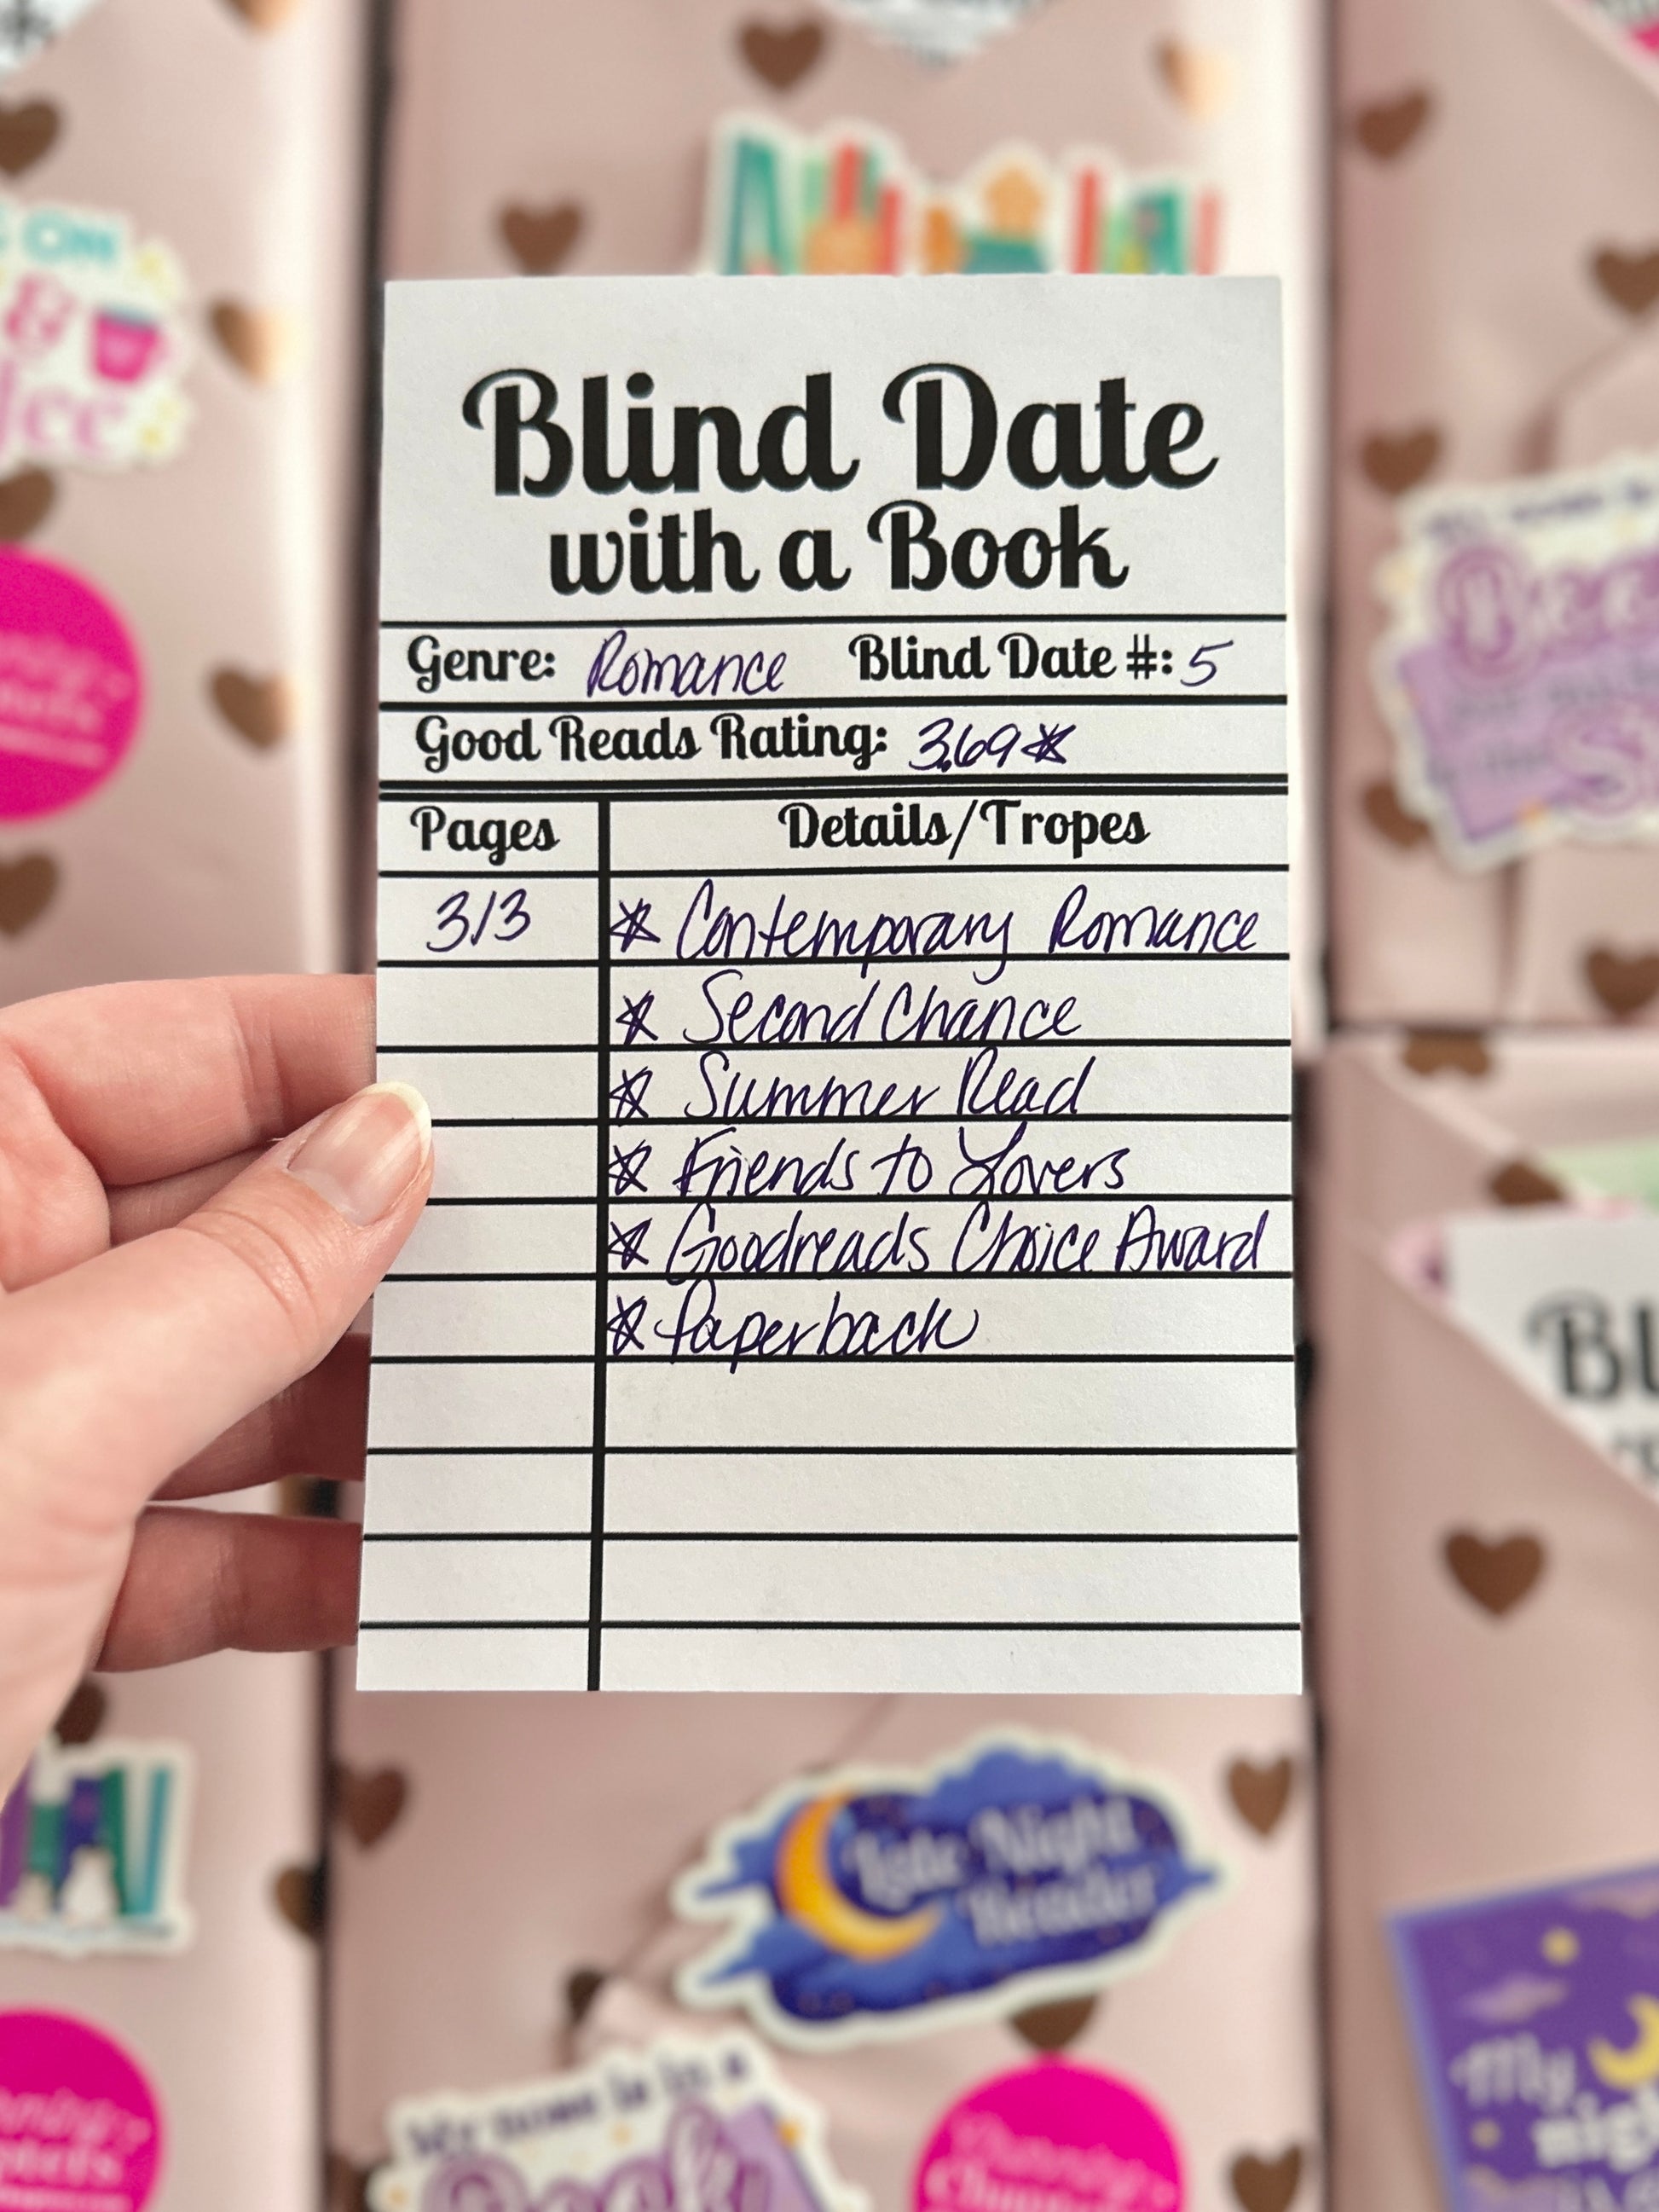 Blind Date
with a Book
Genre: Romance Blind Date #: 5
Good Reads Rating: 3.69 ☆
Pages Details/Tropes
313 ☆ Contemporary Romance
☆ Second Chance
☆ Summer Read
☆ Friends to Lovers
☆ Goodreads Choice Award
☆ Paperback
ON
&
Bl
Late Night
Reader
My name is in a
Book
My
nigh